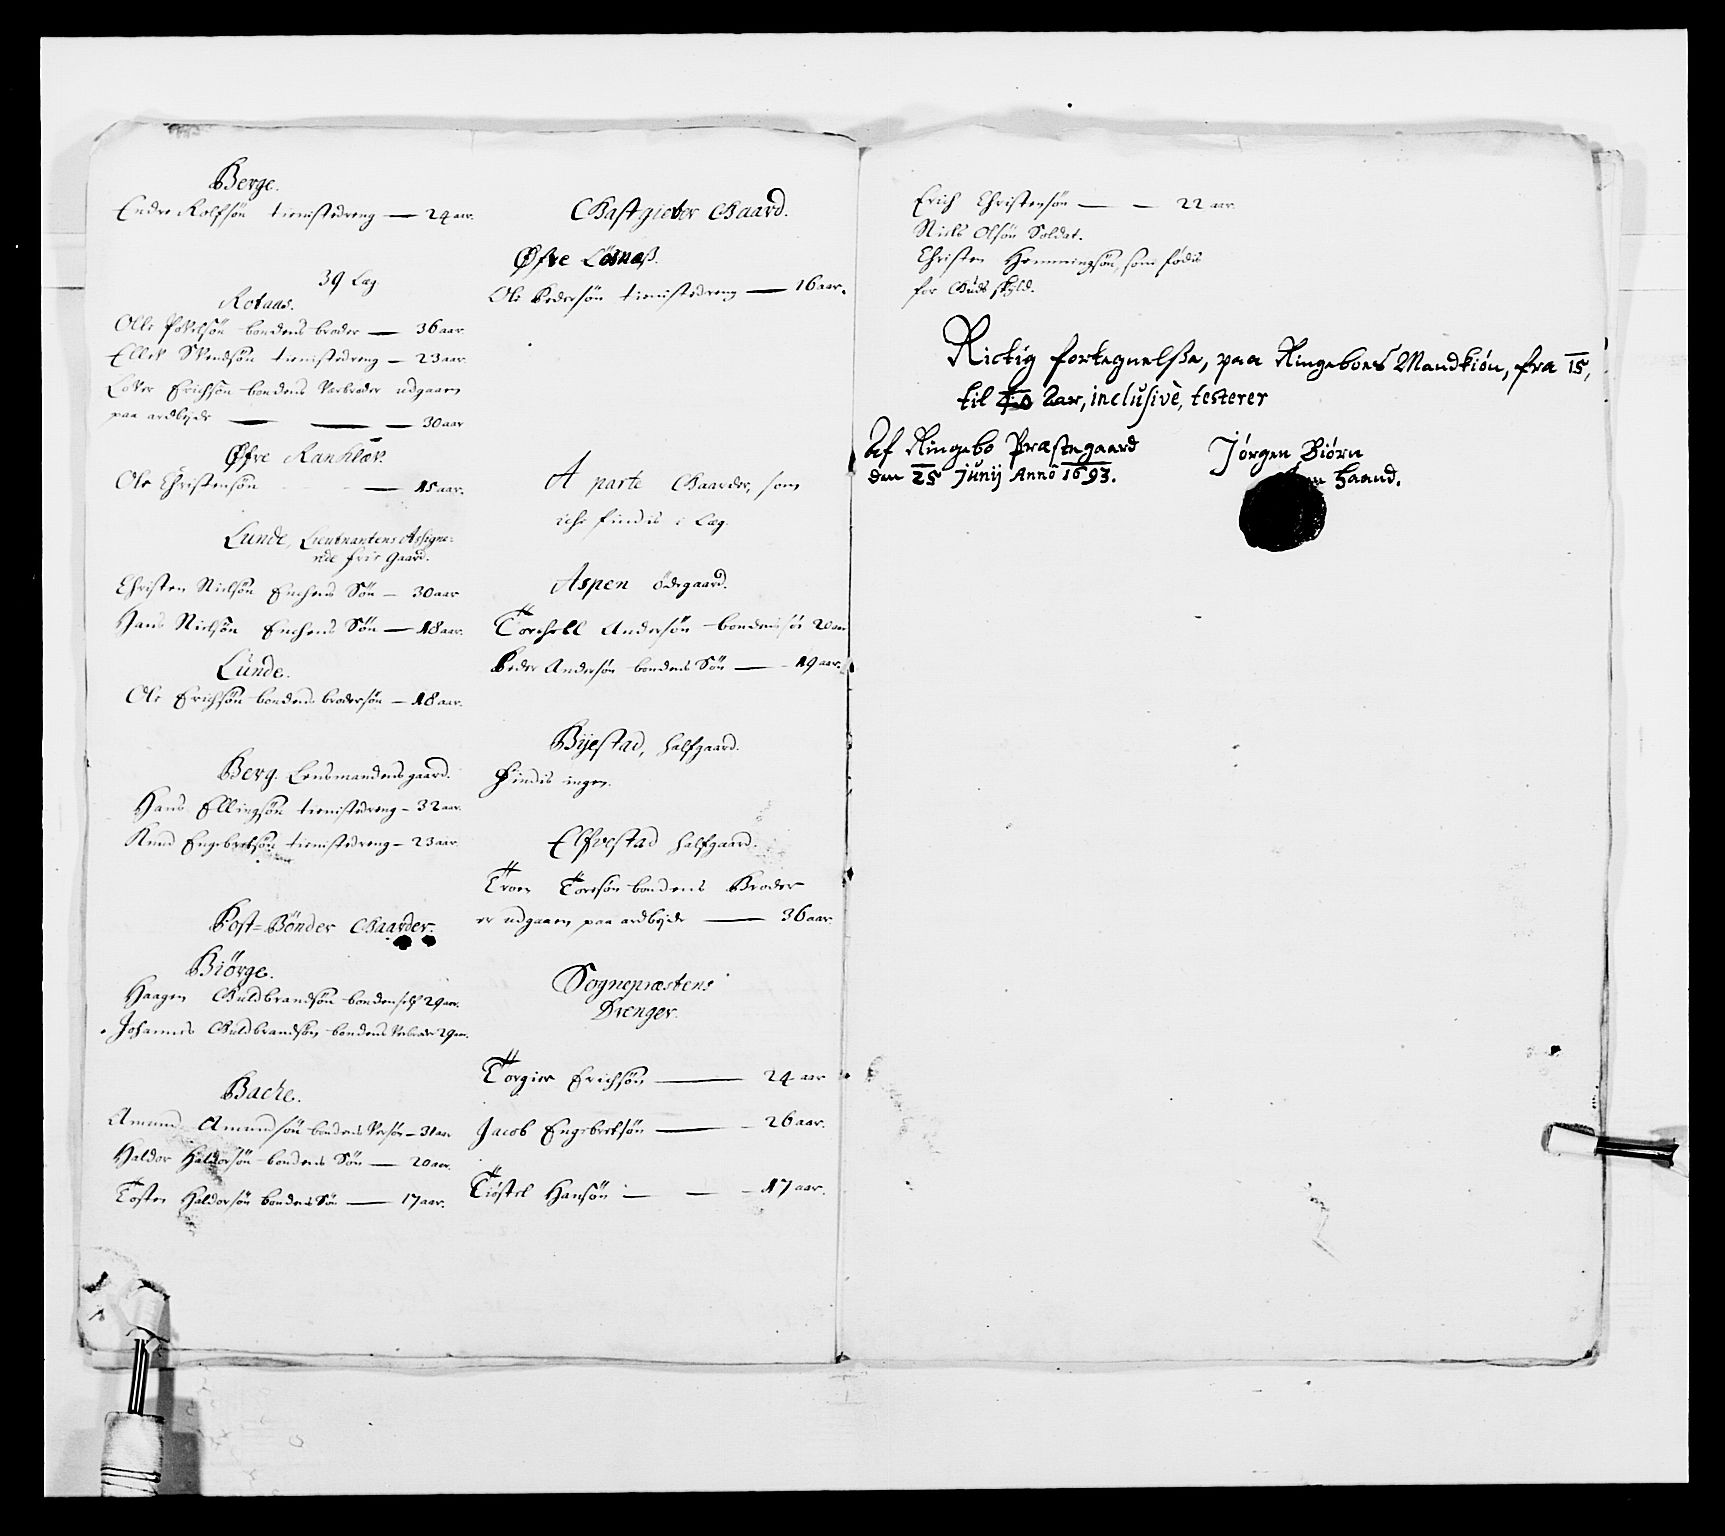 Berge.
Endre Rolfsön tienistedreng — 24 aar.
39 Læg
Rotaas.
Olle Povelsön bondens broder — 36 aar.
Ellev Svendsön tienistedreng — 23 aar.
Erichsön bondens Verbroder udgaaen
paa ardbejde — — — 30 aar
Øfre Ranklæv.
Ole Christensön — 18 aar.
Lunde, Lieutnantens Assigne-
rede frie gaard.
Christen Nielsön Enchens Sön — 30 aar
Hans Nielsön Enchens Sön — 18 aar.
Lunde.
Ole Erichsön bondens brodersön — 18 aar.
Berg. Lensmandens gaard.
Hans Ellingsön tienistedreng — 32 aar.
Knud Engebretsön tienistedreng — 23 aar.
Post-Bönder Gaarder.
Biörge.
Haagen Guldbrandsön bonden self 29 aar.
Johannes Guldbrandsön bondens Verbroder 29 aar.
Bache.
Amund Amundsön bondens Versön — 30 aar
Haldor Haldorsön bondens Sön — 20 aar.
Tosten Haldorsön bondens Sön — 17 aar.
Gastgieber Gaard.
Øfre Lösnæß.
Ole Pedersön tienistedreng — 16 aar.
A parte Gaarder, som
iche findis i Læg.
Aspen ödegaard.
Torchell Andersön bondens sön 20 aar
Peder Andersön bondens Sön — 19 aar.
Bijestad, halfgaard.
Findis ingen.
Elfvestad halfgaard.
Troen Toresön bondens Broder
er udgaaen paa ardbejde — 36 aar
Sognepræstens
Drenger.
Torgier Erichsön — 24 aar
Jacob Engebretsön — 26 aar.
Tiöstel Hansön — — 17 aar.
Erich Christensön — — 22 aar.
Niels Olsön Soldat.
Christen Hemmingsön, som födis
for Guds skyld.
Rictig fortegnelsse, paa Ringeboes Mandkiön, fra 15,
til 40 Aar, inclusivè, testerer
Af Ringebo Præstegaard
den 25 Junij Anno 1693.
Jörgen Biörn
haand.